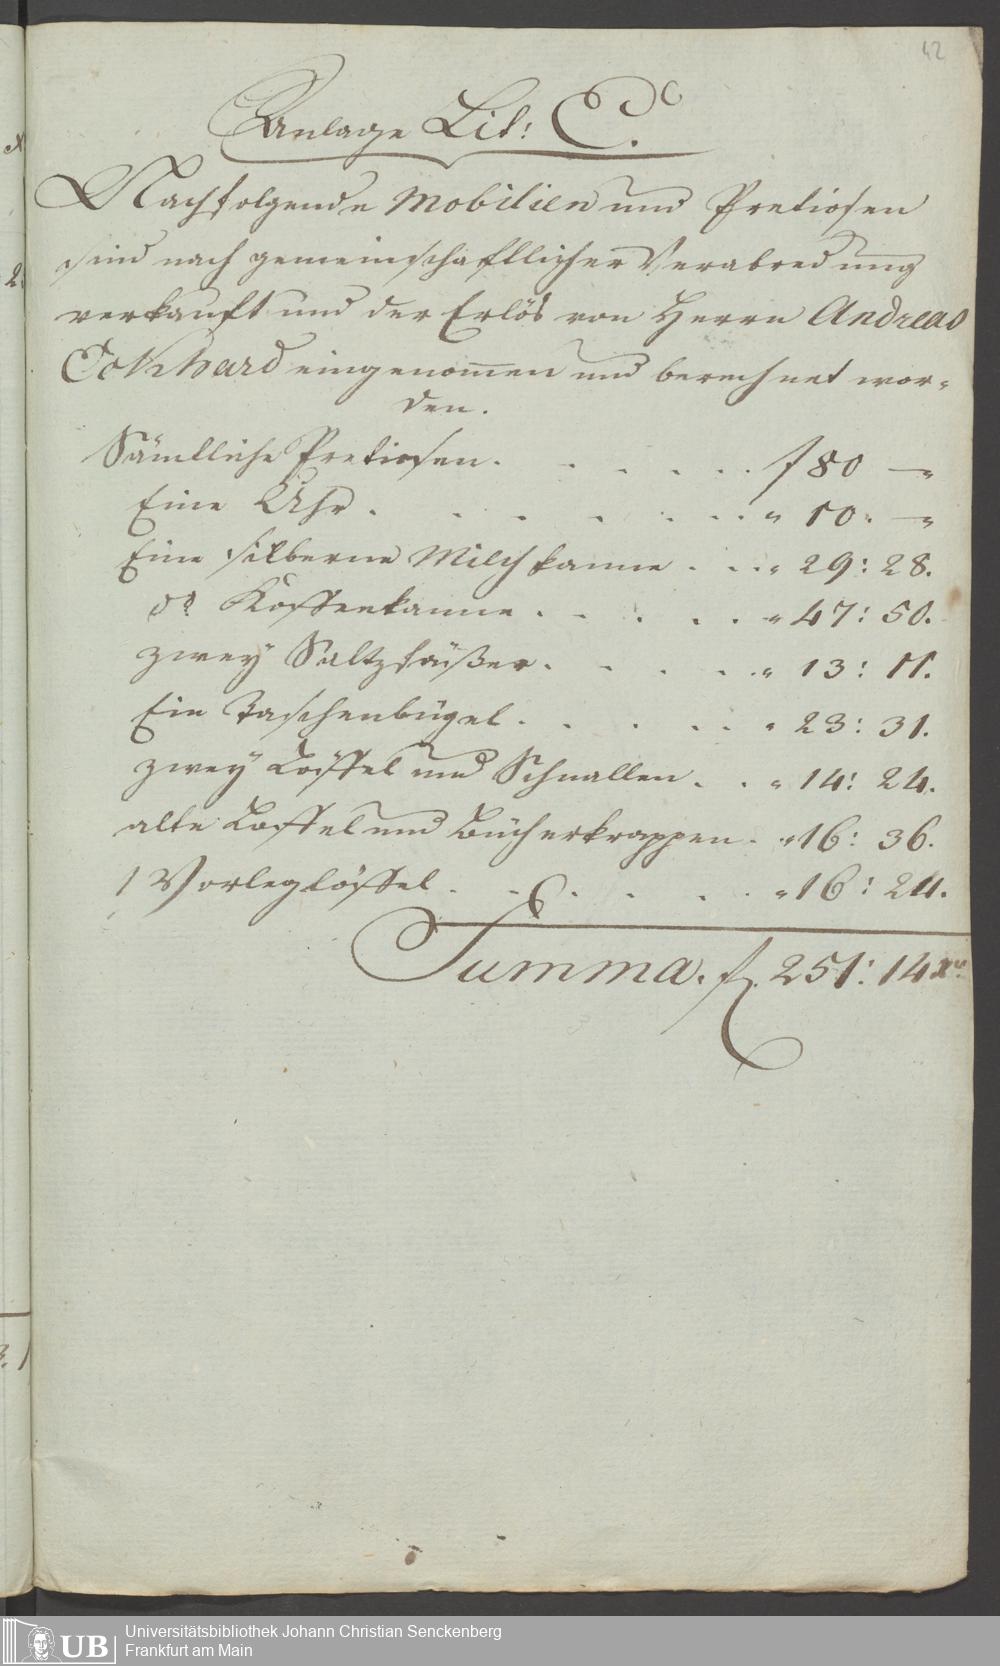 42
Anlage Lit: C.
Nachfolgende Mobilien und Pretiosen
sind nach gemeinschafftlicher Verabredung
verkauft und der Erlös von Herrn Andreas
Eckhard eingenom̄en und berechnet wor-
den.
Sämtliche Pretiosen. . . . . . . f 80 — „
Eine Uhr . . . . . . . . „ 50. — „
Eine silberne Milchkanne . . . „ 29: 28.
do Koffeekanne . . . . . . „ 47: 50.
zwey Saltzfäußer. . . . . . „ 13: 11.
Ein Taschenbügel . . . . . . „ 23: 31.
zwey Löffel und Schnallen . . „ 14: 24.
alte Loffel und Bücherkrappen . „ 16: 36.
1 Vorleglöffel . . . . . . . „ 16: 24.
Summa. f. 251: 14 xr
2
3. 1
UB
Universitätsbibliothek Johann Christian Senckenberg
Frankfurt am Main